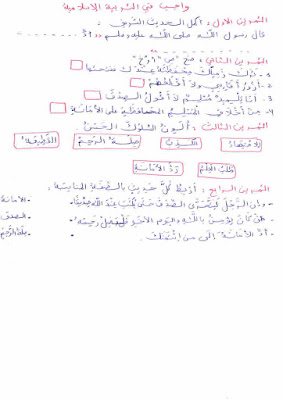 واجب في التربية الإسلامية
التمرين الأول : أكمل الحديث الشريف
قال رسول الله صلى الله عليه وسلم «أدّ ......
......................»
التمرين الثاني : ضع "ص" أو "خ"
1- ترك زميلك محفظته عندك
2- أزور أقاربي ولا أقاطعهم
3- أنا تلميذ مسلم لا أقول الصدق
4- من أخلاق المسلم المحافظة على الأمانة
التمرين الثالث : ألون السلوك الحسن
الكذب صلة الرحم القطيعة
طلب العلم ردّ الأمانة
التمرين الرابع : أربط كل حديث بالصفة المناسبة :
- وإن الرجل ليتحرى الصدق حتى يكتب عند الله صديقا - الأمانة
- من كان يؤمن بالله واليوم الآخر فليصل رحمه - الصدق
- أدّ الأمانة إلى من ائتمنك - صلة الرحم